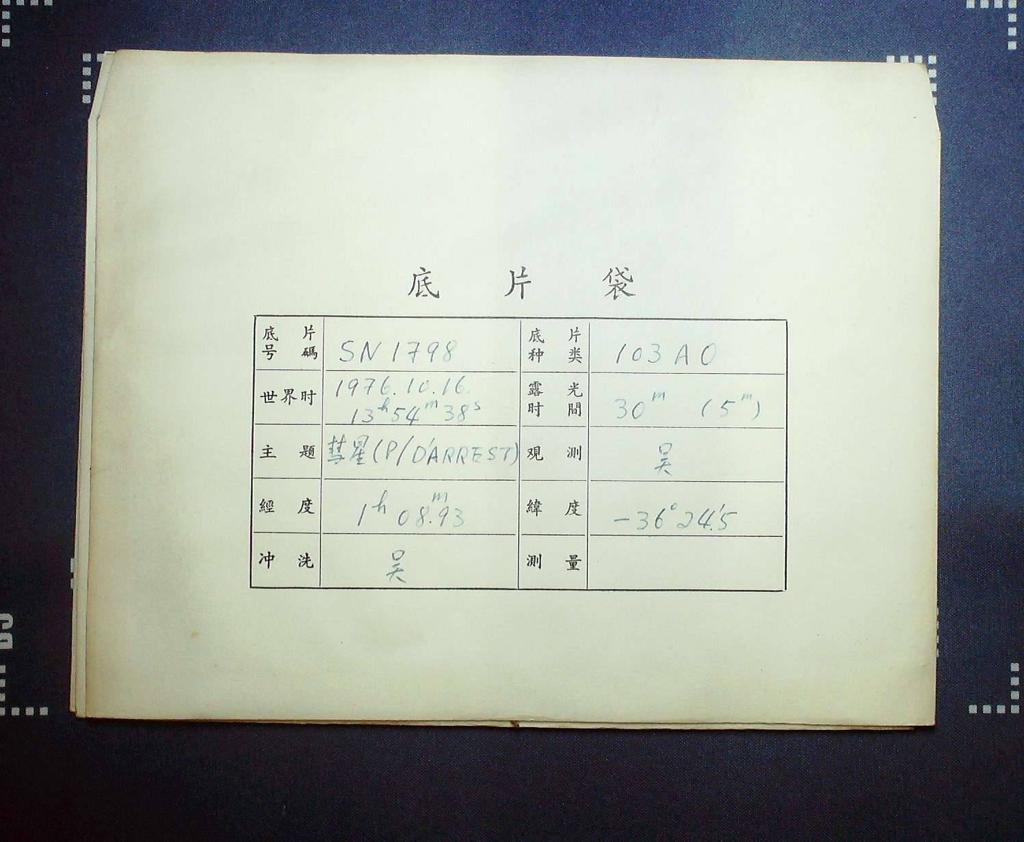 底片袋
底片号碼 SN1798 底片种类 103AO
世界时 1976.10.16. 13ʰ54ᵐ38ˢ 露光时間 30ᵐ (5ᵐ)
主題 彗星(P/D'ARREST) 观測 吴
經度 1ʰ 08ᵐ.93 緯度 -36°24.'5
冲洗 吴 測量